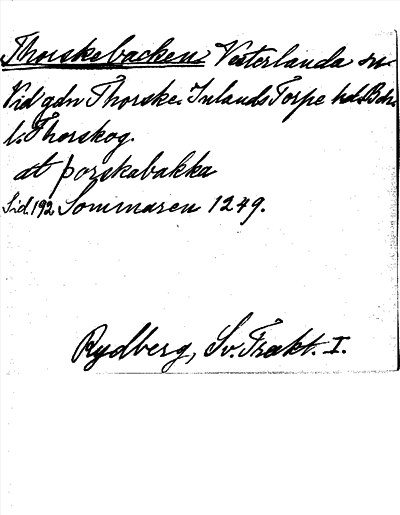 Thorskebacken Vesterlanda sn
Vid gdn Thorske. Inlands Torpe hd. Boh.
l. Thorskog.
at þorskabakka
Sid. 192 Sommaren 1249.
Rydberg, Sv. Trakt. I.